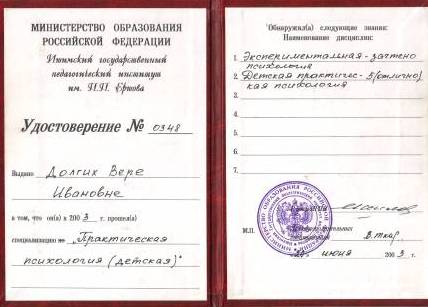 МИНИСТЕРСТВО ОБРАЗОВАНИЯ
РОССИЙСКОЙ ФЕДЕРАЦИИ
Ишимский государственный
педагогический институт
им. П.П. Ершова
Удостоверение № 0348
Выдано Долгих Вере
Ивановне
в том, что он(а) в 2003 г. прошел(а)
специализацию по "Практическая
психология (детская)"
Обнаружил(а) следующие знания:
Наименование дисциплин:
1. Экспериментальная - зачтено
психология
2. Детская практичес- 5(отлично)
кая психология
3.
4.
5.
6.
7.
М.П.
июня 2003 г.